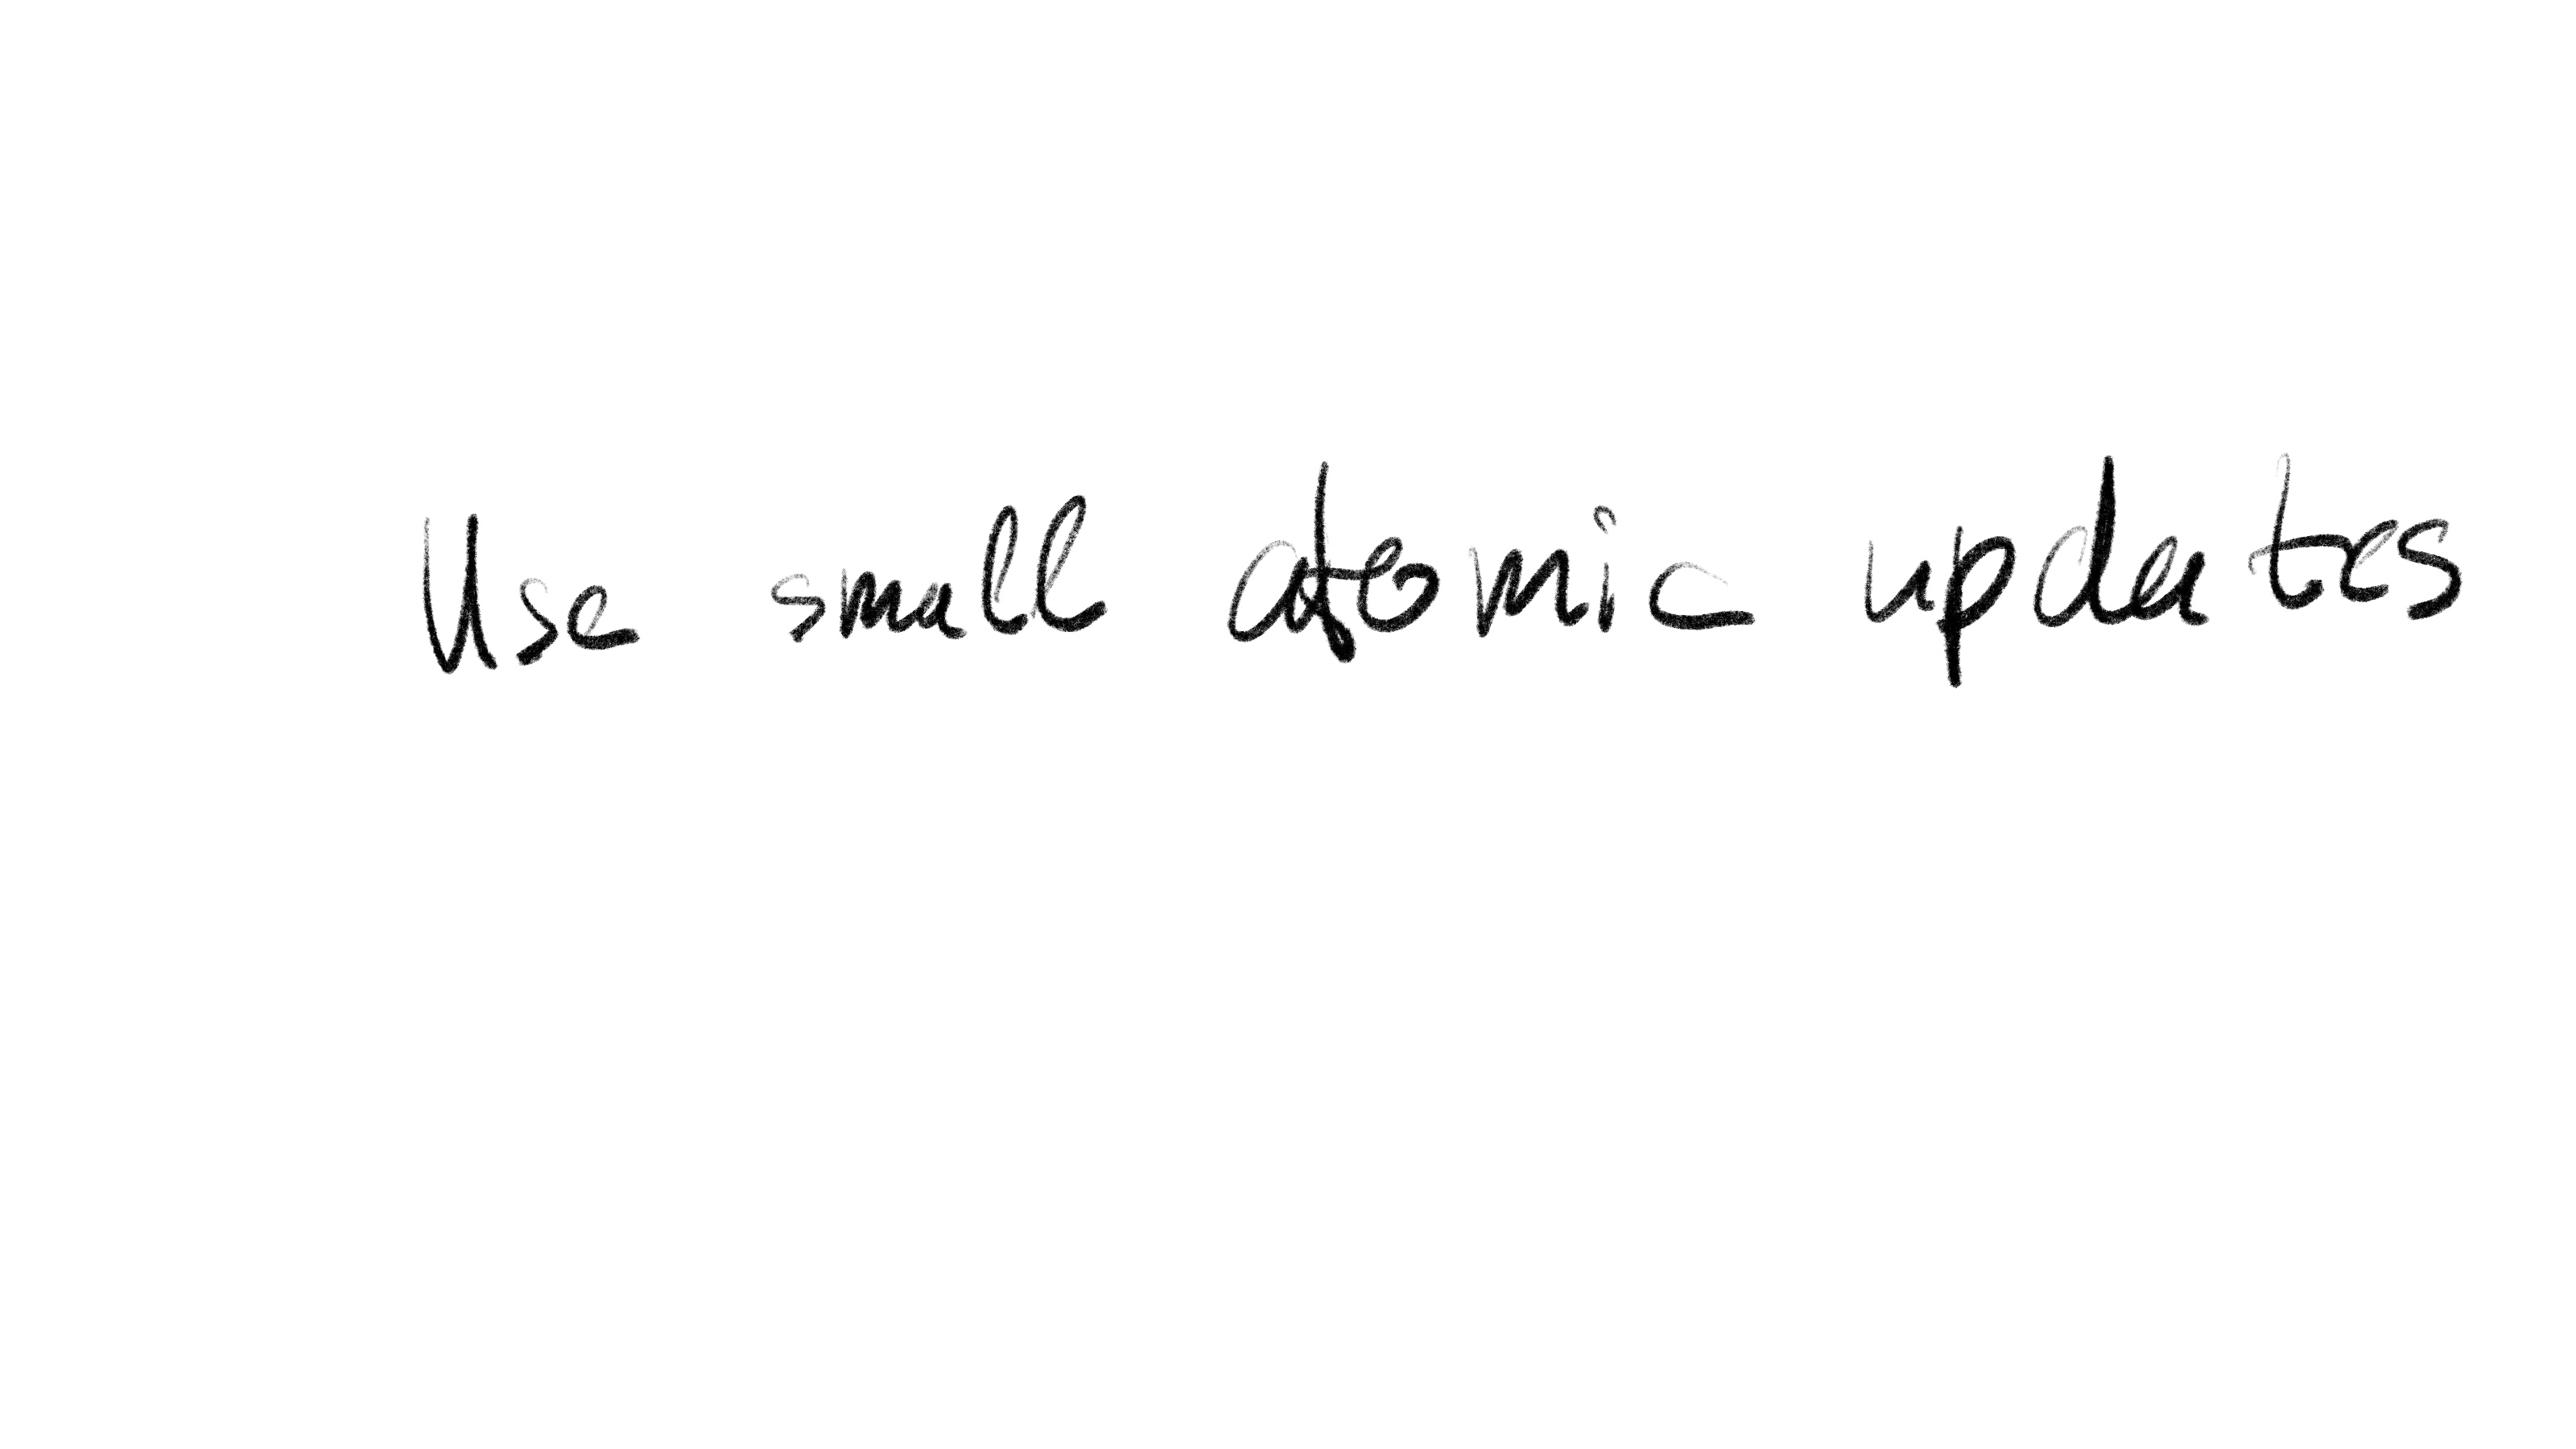 Use small atomic updates